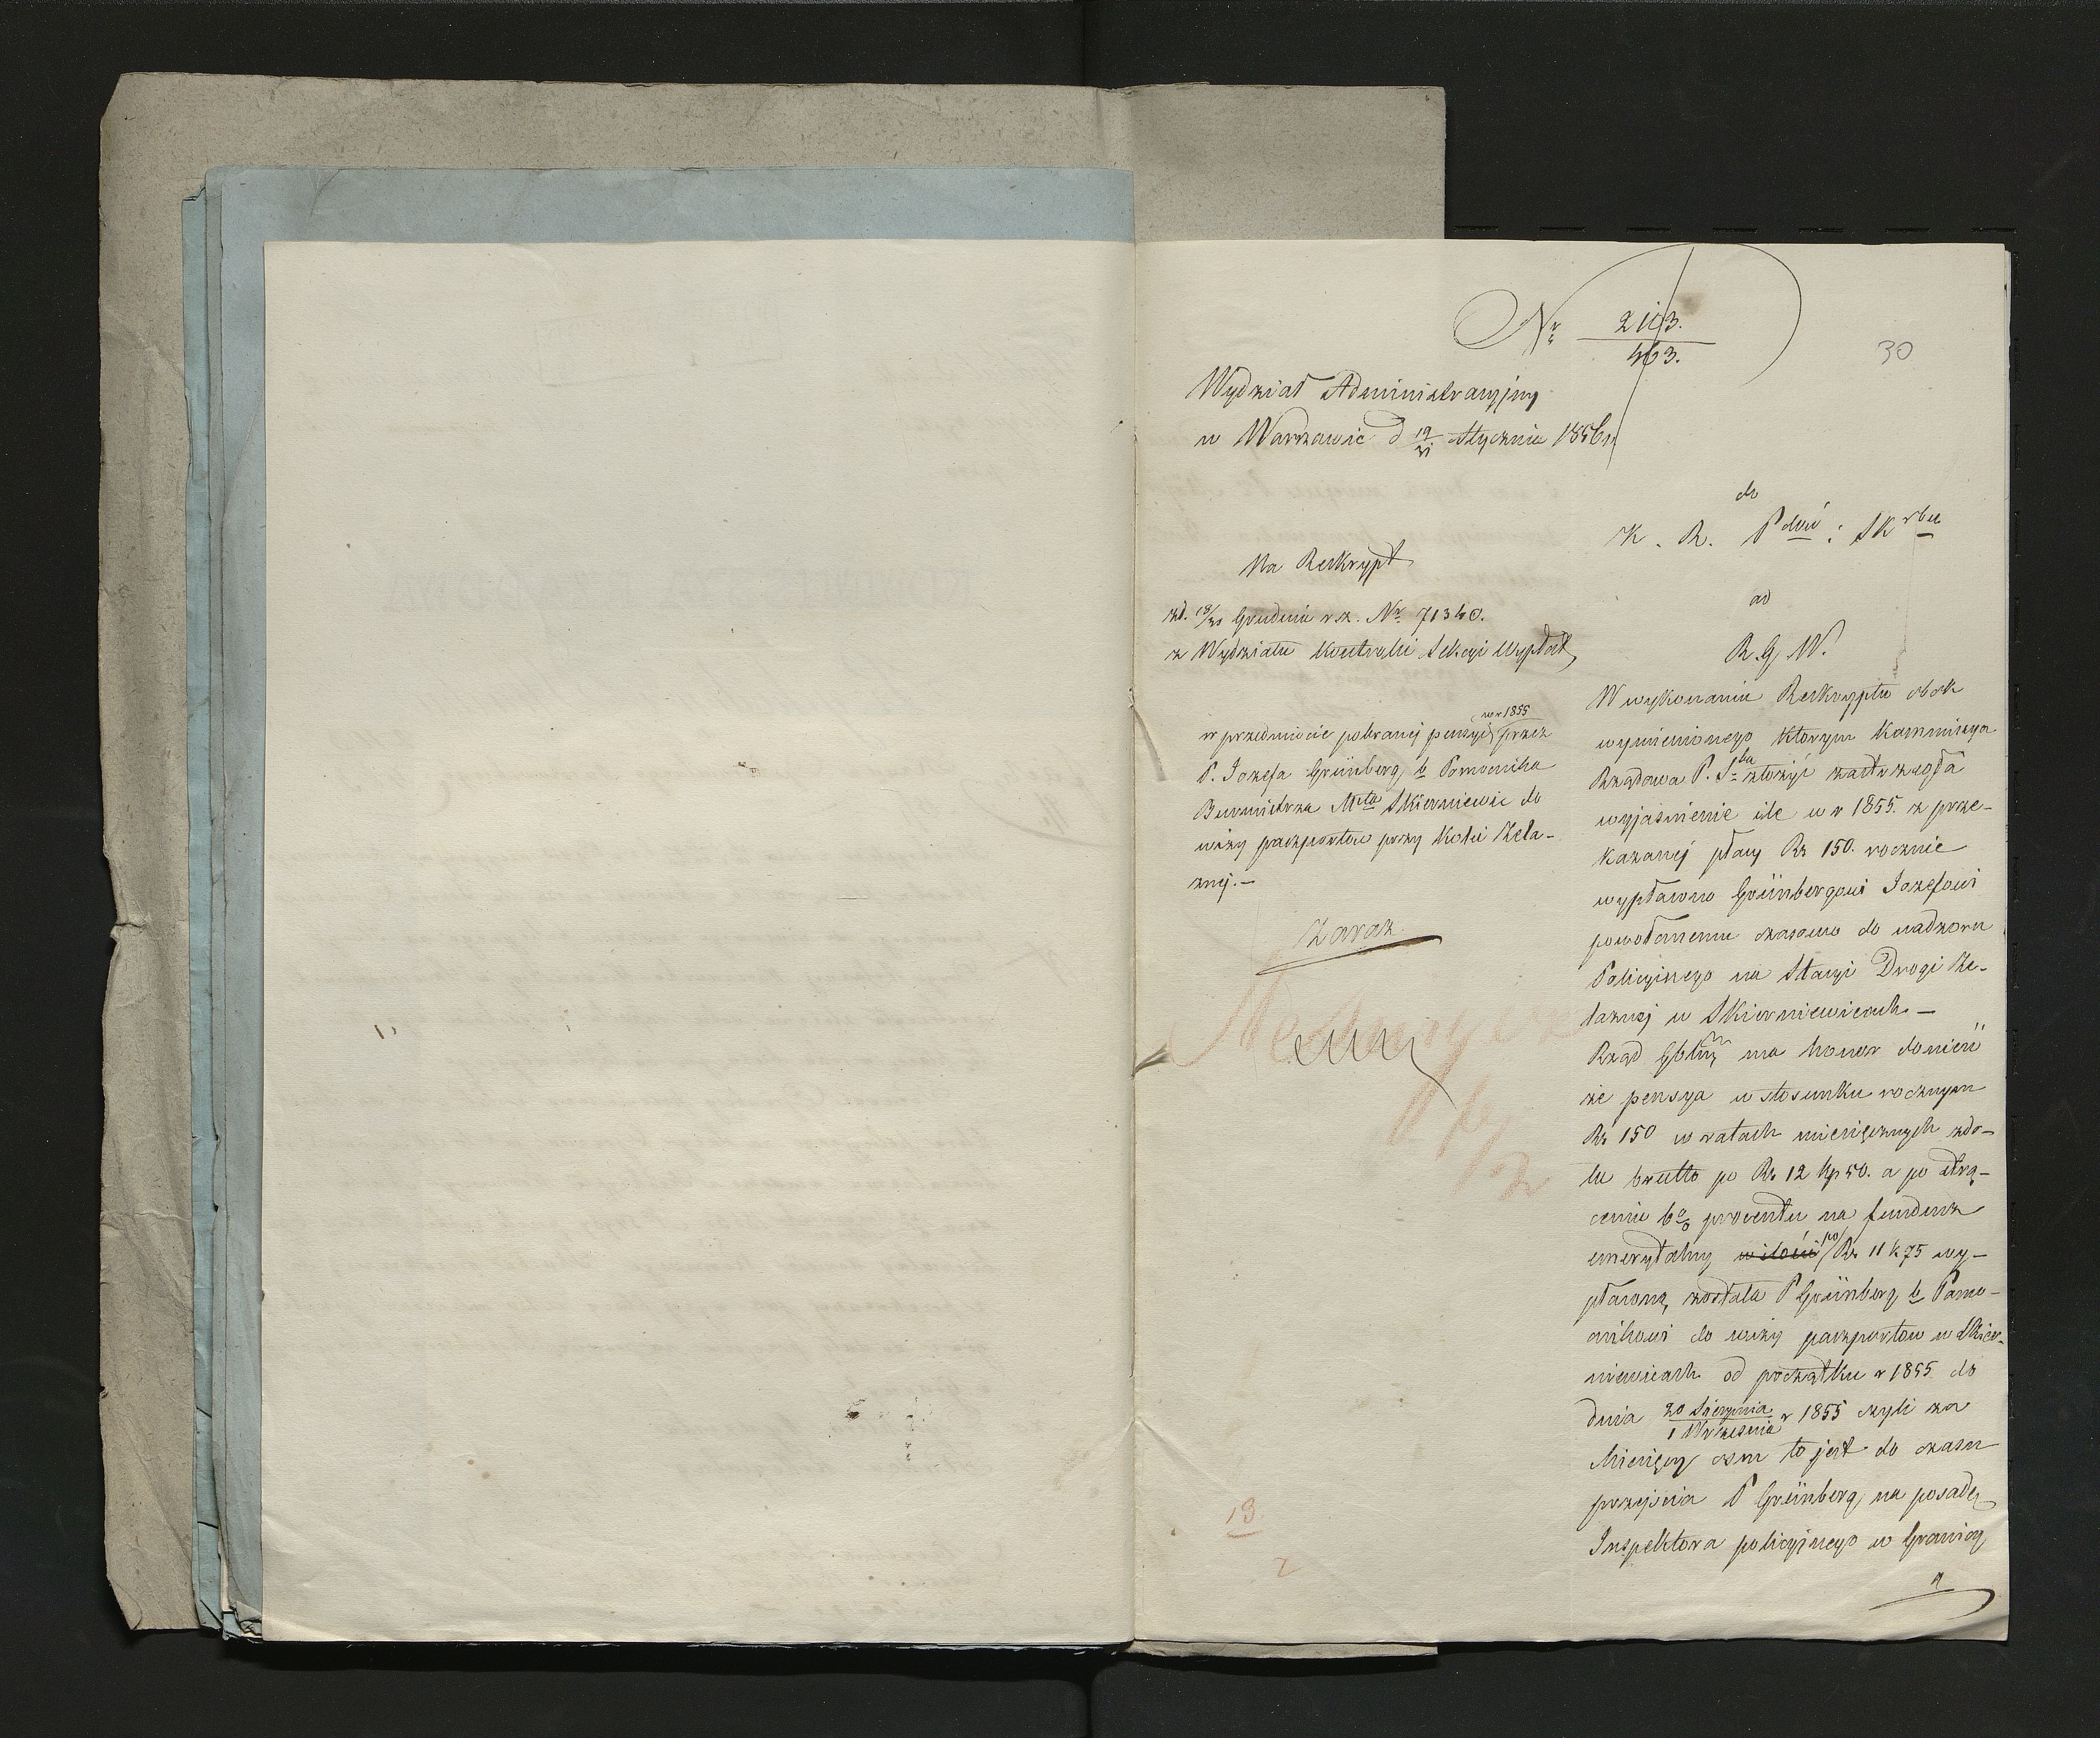 Nr 2113.
463.
30
Wydział Administracyjny
w Warszawie d 19/31 Stycznia 1856 r
Na Reskrypt
zd. 18/30 Grudnia r z. Nr 71340.
z Wydziału Kontroli Sekcyi Wypłat,
w r 1855
w przedmiocie pobranej pensyi przez
P. Jozefa Grünberg b Pomocnika
Burmistrza Mta Skierniewic do
wizy paszportow przy Kolei Żela-
znej.—
Zaraz
13
2
do
K. R. P dów : Skrbu
ad
R. G. W.
W wykonaniu Reskryptu obok
wymienionego ktorym Kommissya
Rządowa P. S ba złożyć zastrzegła
wyjaśnienie ile w r 1855. z prze-
kazanej płacy Rs 150. rocznie
wypłacono Grünbergowi Jozefowi
powołanemu czasowo do nadzoru
Policyjnego na Stacyi Drogi Że-
laznej w Skierniewicach.—
Rząd Gblny ma honor donieść
że pensya w stosunku rocznym
Rs 150 w ratach miesięcznych zdo-
łu brutto po Rs. 12 kp 50. a po strą-
ceniu 6% procentu na fundusz
emerytalny w ilości po Rs. 11 k 75 wy-
płaconą została P Grünberg b Pomo-
cnikowi do wizy paszportow w Skier-
niewicach od początku r 1855 do
dnia 20 Sierpnia / 1 Września r 1855 czyli za
Miesięcy osm to jest do czasu
przejścia P Grünberg na posadę
Inspektora policyjnego w Granicy